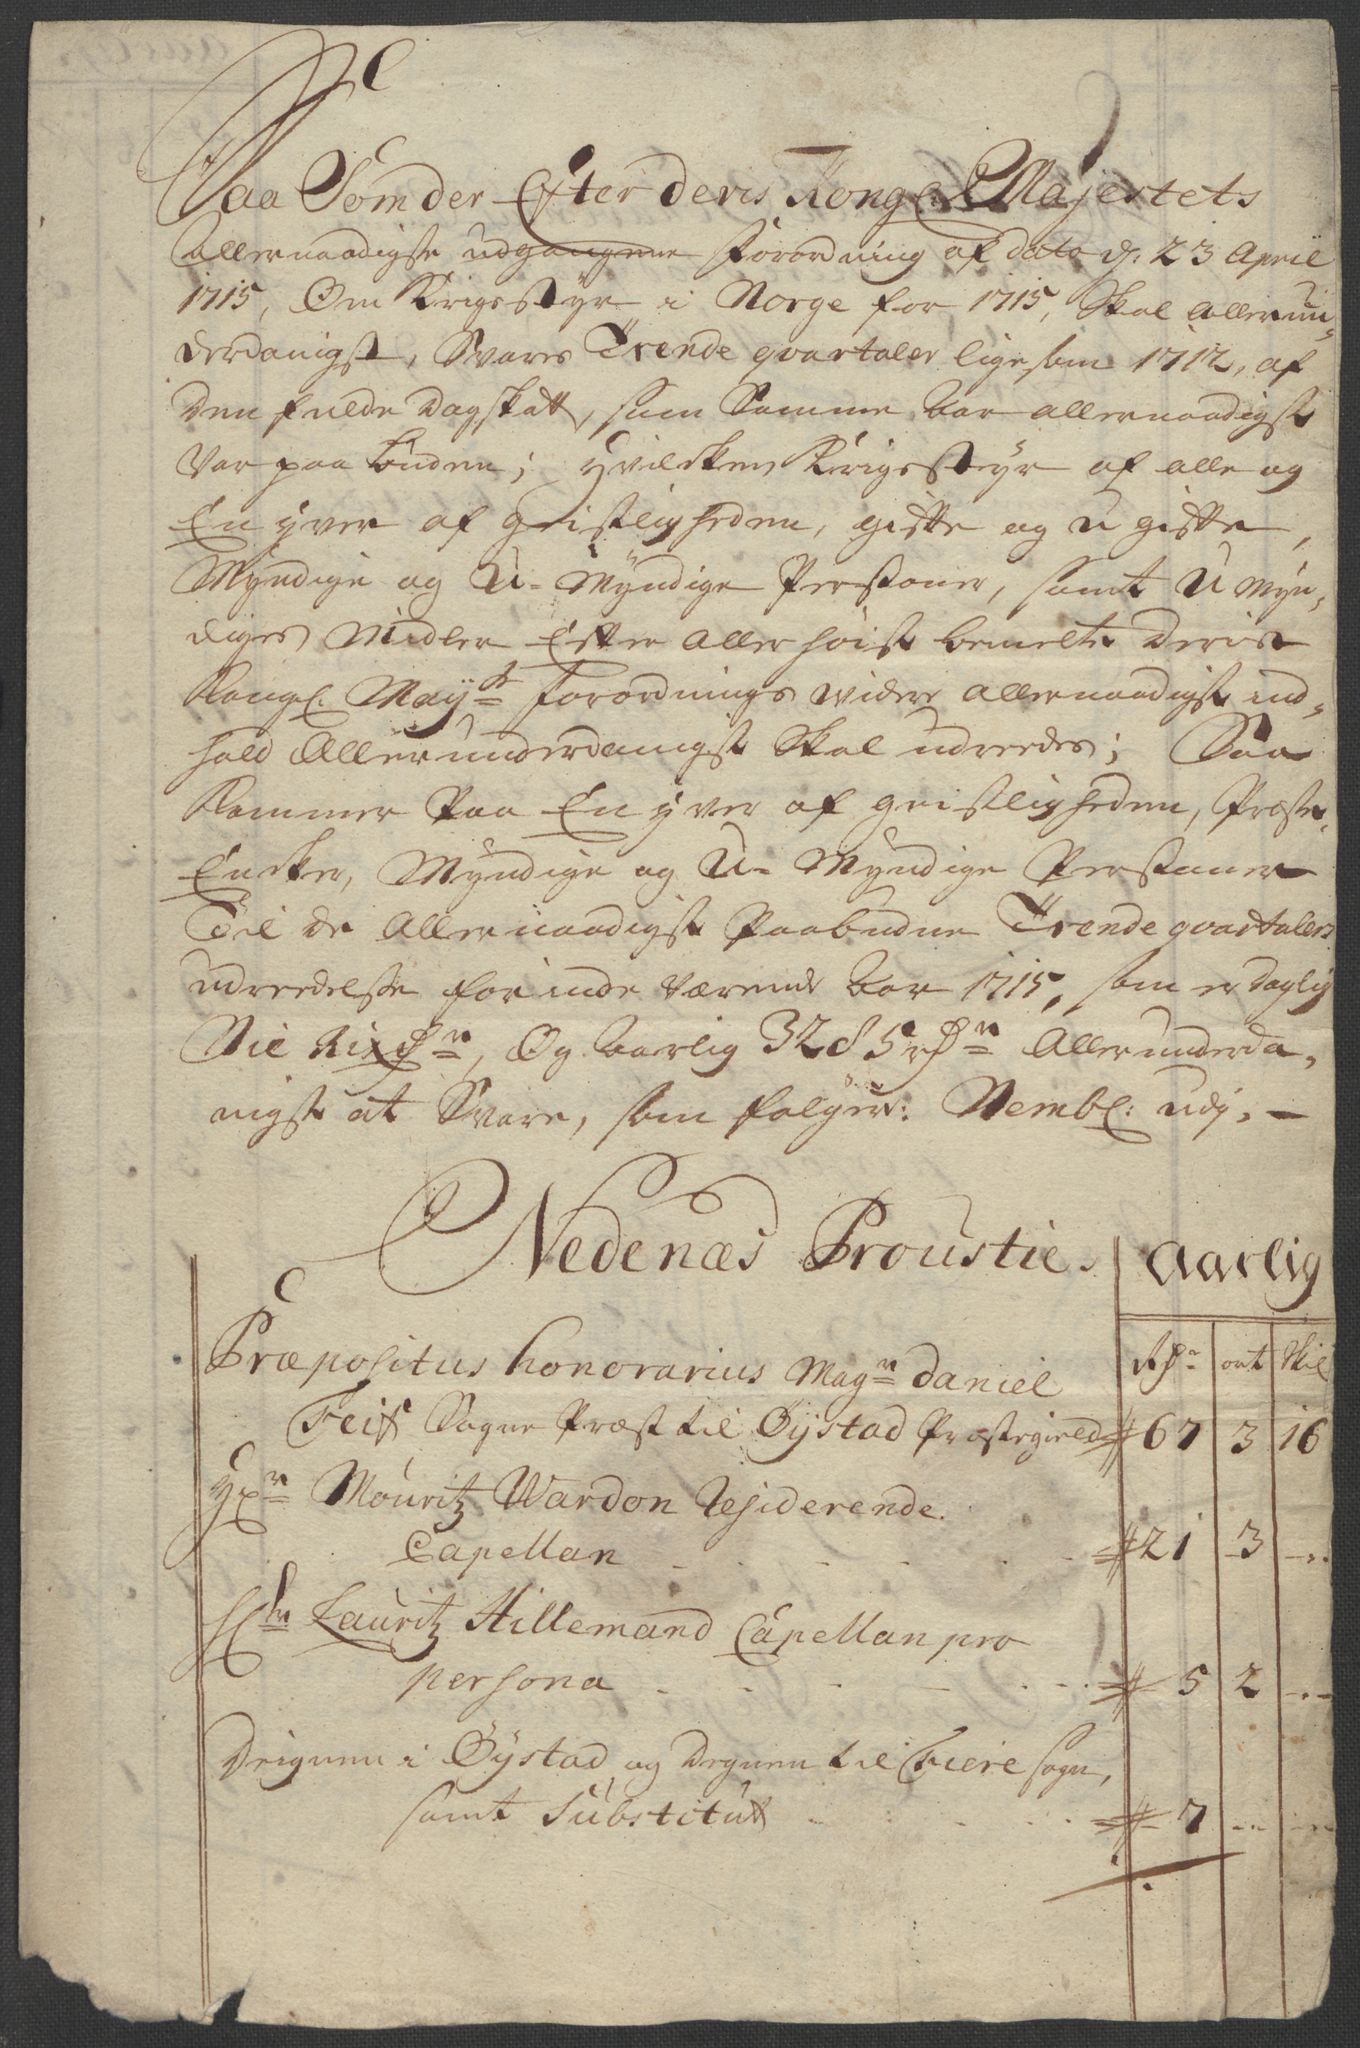 Saa Som der Efter deris Kongel Majestets
allernaadigste udgangene Forordning af dato d. 23 April
1715, Om Krigsstyr i Norge for 1715, Skal allerun-
derdanigst, Svares Trende qvartaler lige som 1712, af
den fulde Dagskatt, som Samme Aar allernaadigst
var paa buden; hvilcken Krigsstyr af alle og
En hver af Geistligheden, giffte og u giffte,
Myndige og U-Myndige Persloner, samt U Myn-
diges Midler Effter allerhøist bemelte Deris
Kongl. Mayts Forordnings videre allernaadigst ind-
hold Allerunderdanigst Skal udreedes; Saa
Kommer Paa En hver af Geistligheden, Præste-
Encker, Myndige og U-Myndige Personer
Til de Allernaadigst Paabudne Trende qvartalers
udreedelse for inde værende Aar 1715, som er daglig
Nie Rixdr, Og Aarlig 3285 rdr Allerunderda-
nigst at Svare, som følger: Nembl: udj, -
Nedenæs Proustie. Aarlig
Præpositus honorarius Magr Daniel Rdr ort Skil
Feiff Sogne Præst til Øystad Præstegield # 67 3 16
Hr Mouritz Wardon Residerende
Capellan # 21 3 -
Hr Lauritz Hillemand Capellan pro
persona # 5 2 -
Deignen i Øystad og Degnen til Fiere sogn,
samt Substitut # 7 - -